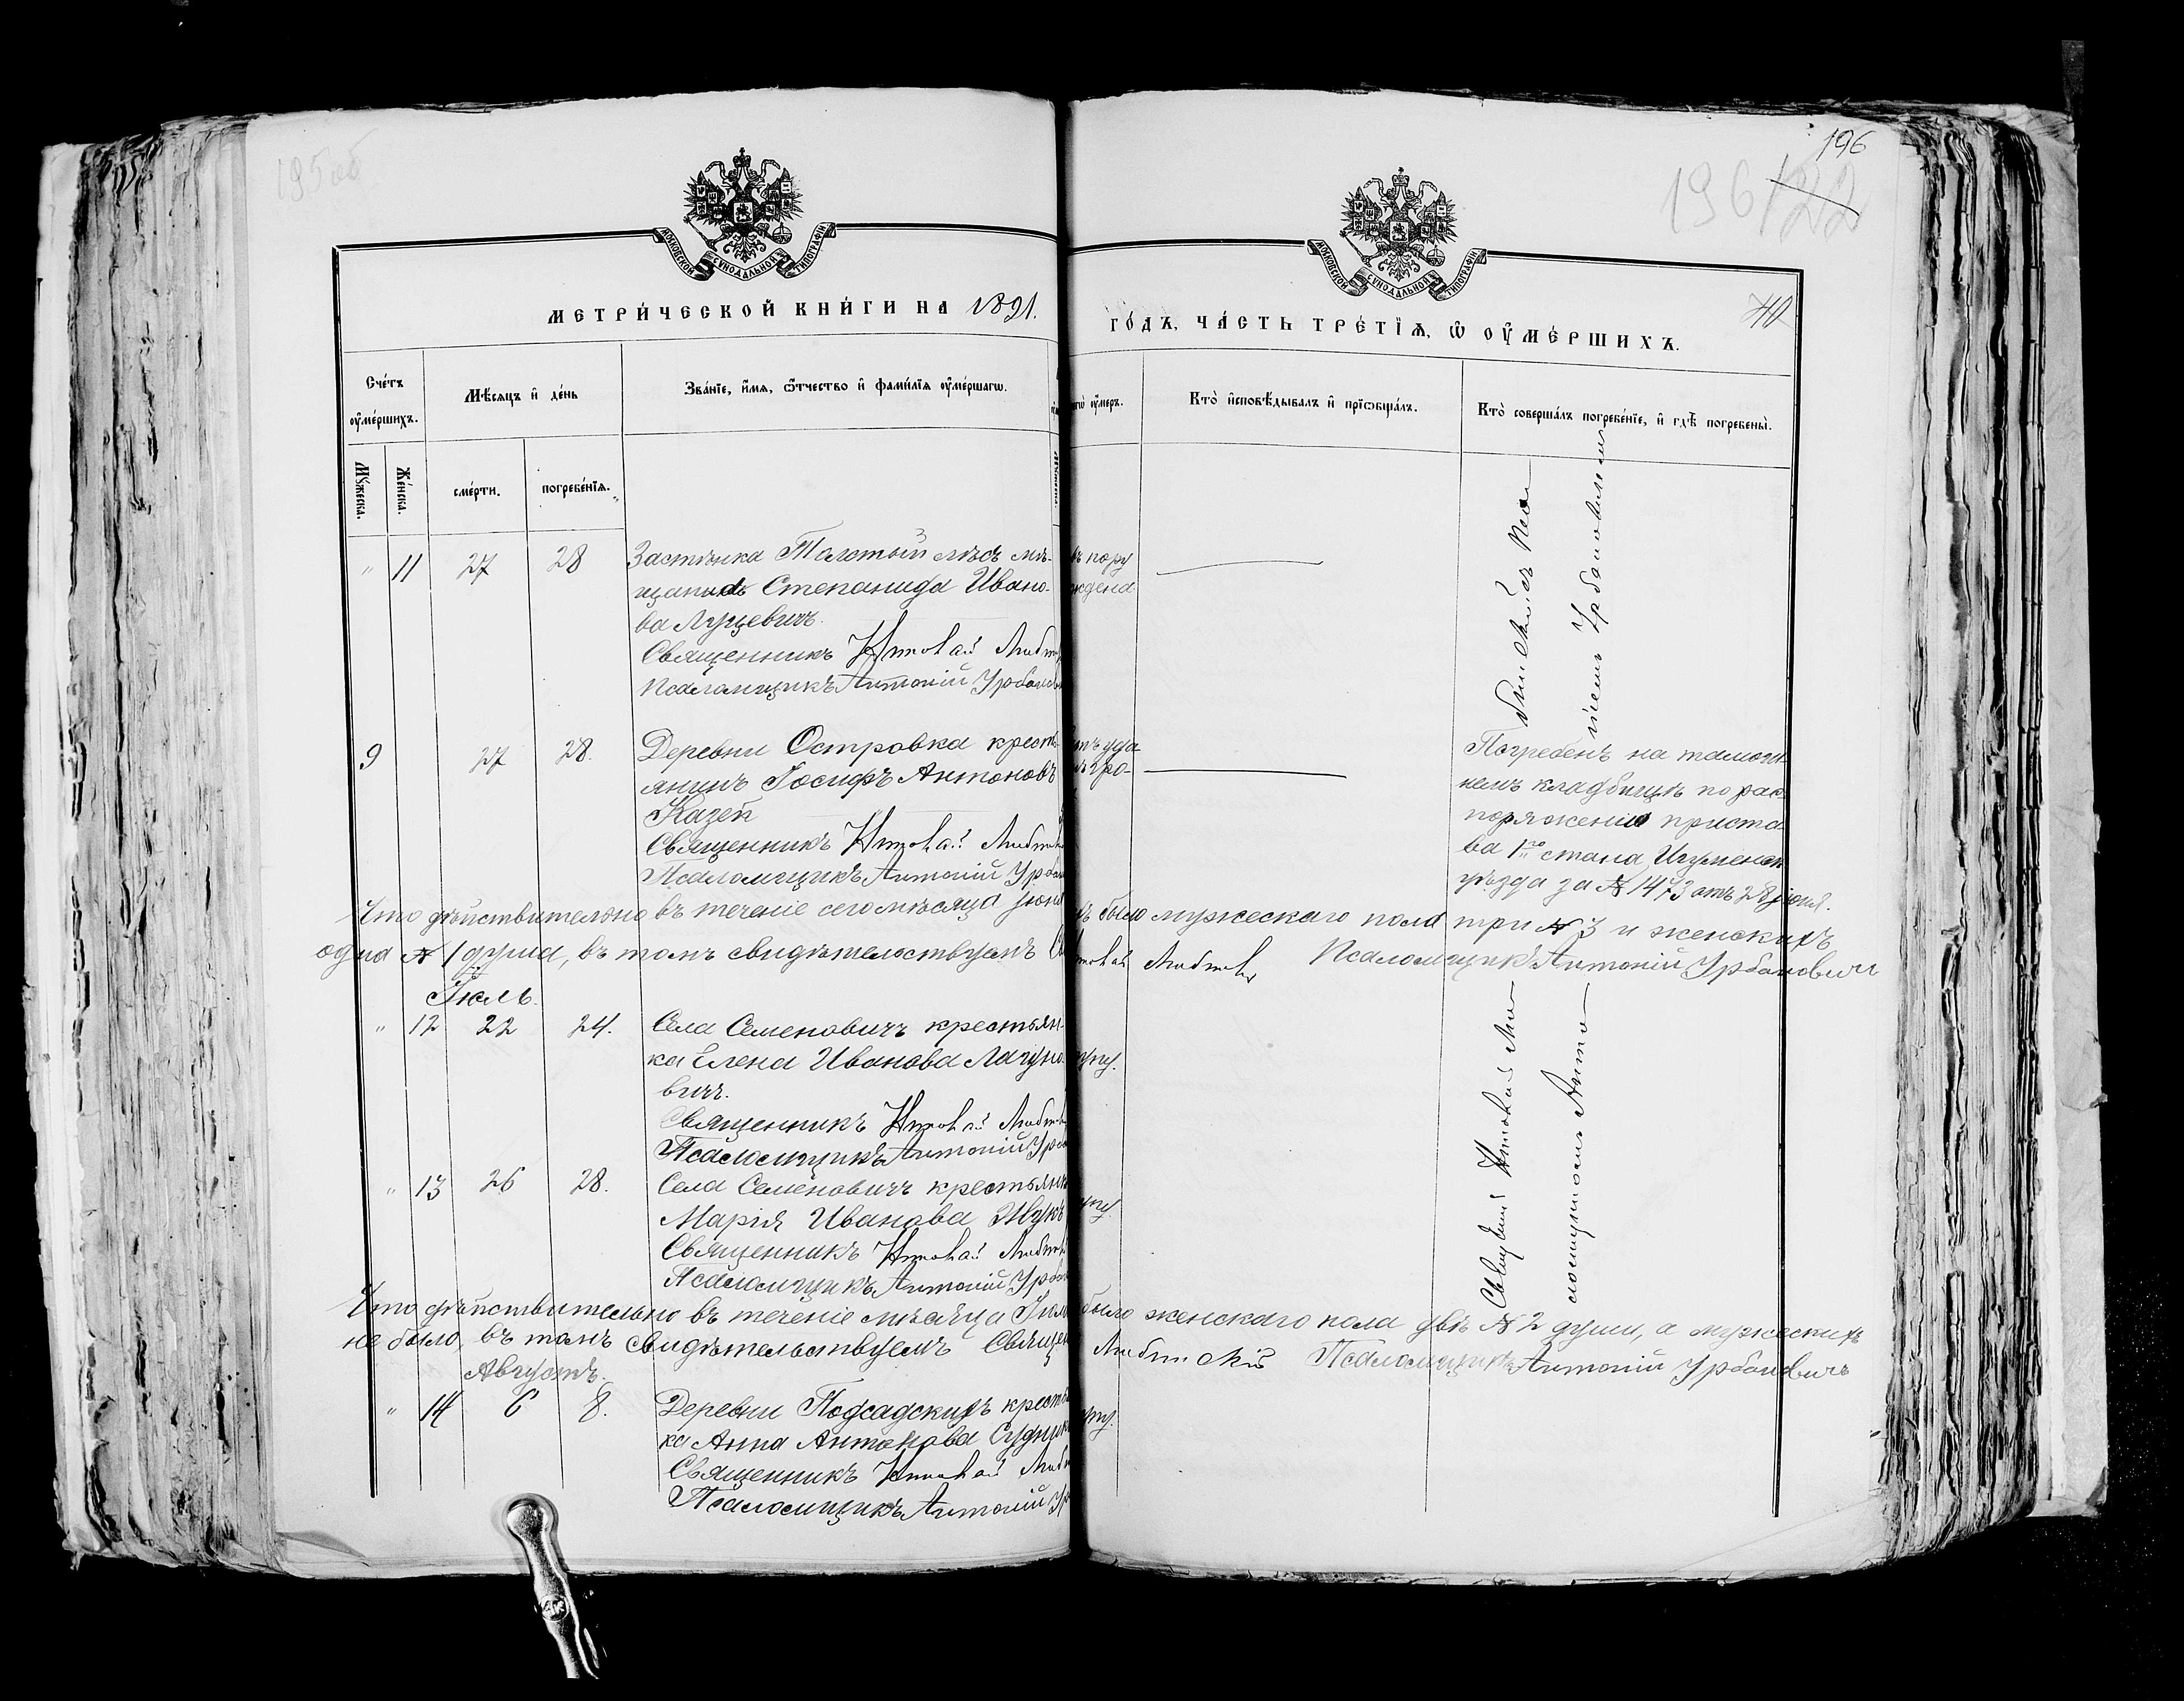 195об
196
196 122
МОСКОВСКОЙ СУНОДАЛЬНОЙ ТИПОГРАФІИ
МОСКОВСКОЙ СУНОДАЛЬНОЙ ТИПОГРАФІИ
МЕТРИ́ЧЕСКОЙ КНИ́ГИ НА 1891.
ГО́ДЪ, ЧА́СТЬ ТРЕ́ТІѦ, Ѡ ОУМЕ́РШИХЪ.
40
Сче́тъ оумершихъ.
Мѣсяцъ и де́нь
Зва́ніе, и́мя, ѻтчество и фами́лїѧ оумершагѡ.
оумеръ.
Кто̀ исповѣ́дывалъ и прїѡбщалъ.
Кто̀ соверша́лъ погребе́нїе, и гдѣ̀ погребены̀.
Мꙋжеска.
Же́нска.
сме́рти.
погребе́нїѧ.
" 11 27 28 Застѣнка Толстый лѣсъ мѣ-
щанка Степанида Ивано-
ва Луцевичъ.
Священникъ
Псаломщикъ Антоній Урбанов
9 27 28. Деревни Островка кресть-
янинъ Іосифъ Антоновъ
Казей
Священникъ
Псаломщикъ Антоній Урбан
Погребенъ на тамош-
немъ кладбищѣ по рас-
поряженію приста-
ва 1го стана Игуменск
уѣзда за № 1473 отъ 28 іюня.
Что дѣйствительно въ теченіе сего мѣсяца Іюня было мужескаго пола три № 3 и женскихъ
одна № 1 душа, въ томъ свидѣтельствуемъ Псаломщикъ Антоній Урбановичъ
Іюль.
" 12 22 24. Села Семеновичъ крестьян-
ка Елена Иванова Лагуно-
вичъ.
Священникъ
Псаломщикъ Антоній Урб
" 13 26 28. Села Семеновичъ крестьянка
Марія Иванова Жукъ
Священникъ
Псаломщикъ Антоній Урбан
Что дѣйствительно въ теченіе мѣсяца Іюля было женскаго пола двѣ № 2 души, а мужескихъ
не было, въ томъ свидѣтельствуемъ Священ Псаломщикъ Антоній Урбановичъ
Августъ.
" 14 6 8. Деревни Подсадскихъ кресть
ка Анна Антонова Судник
Священникъ
Псаломщикъ Антоній Ур